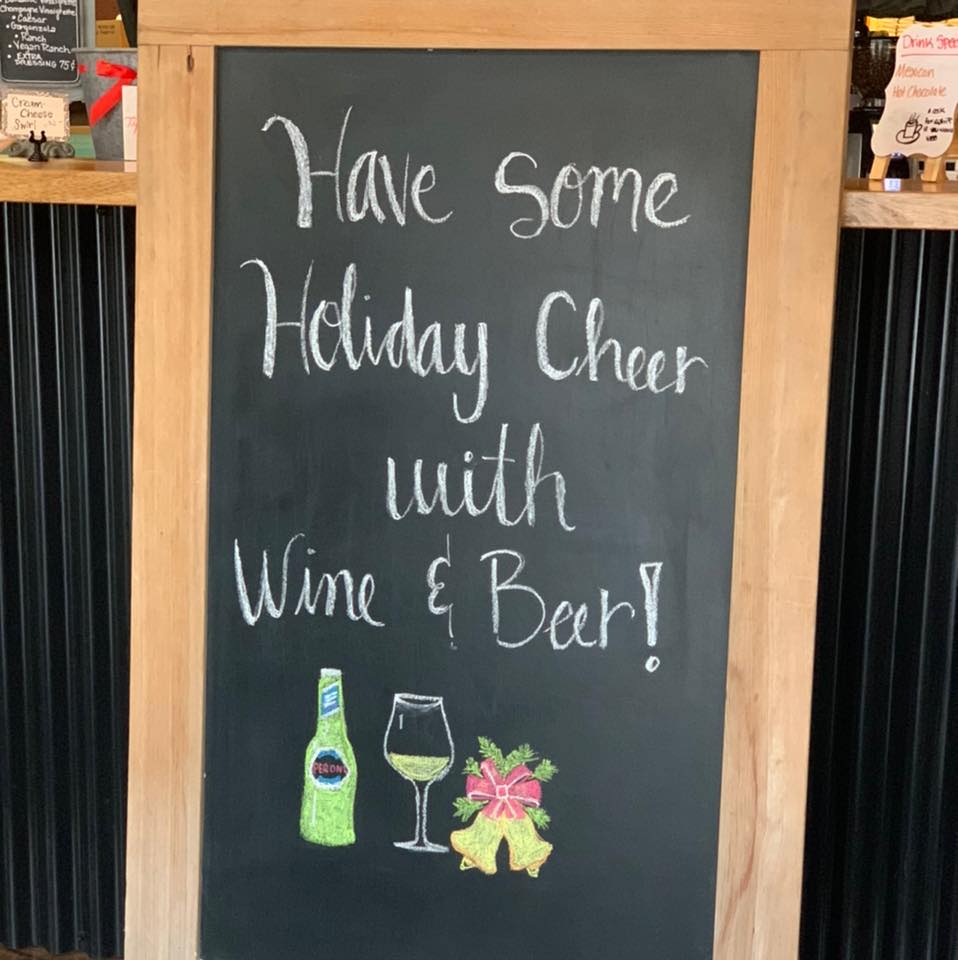 Champagne Vinaigrette
• Caesar
• Gorgonzola
• Ranch
• Vegan Ranch
• EXTRA
DRESSING 75¢
Cream
Cheese
Swirl
Have Some
Holiday Cheer
with
Wine & Beer!
PERONI
Drink Spec
Mexican
Hot Chocolate